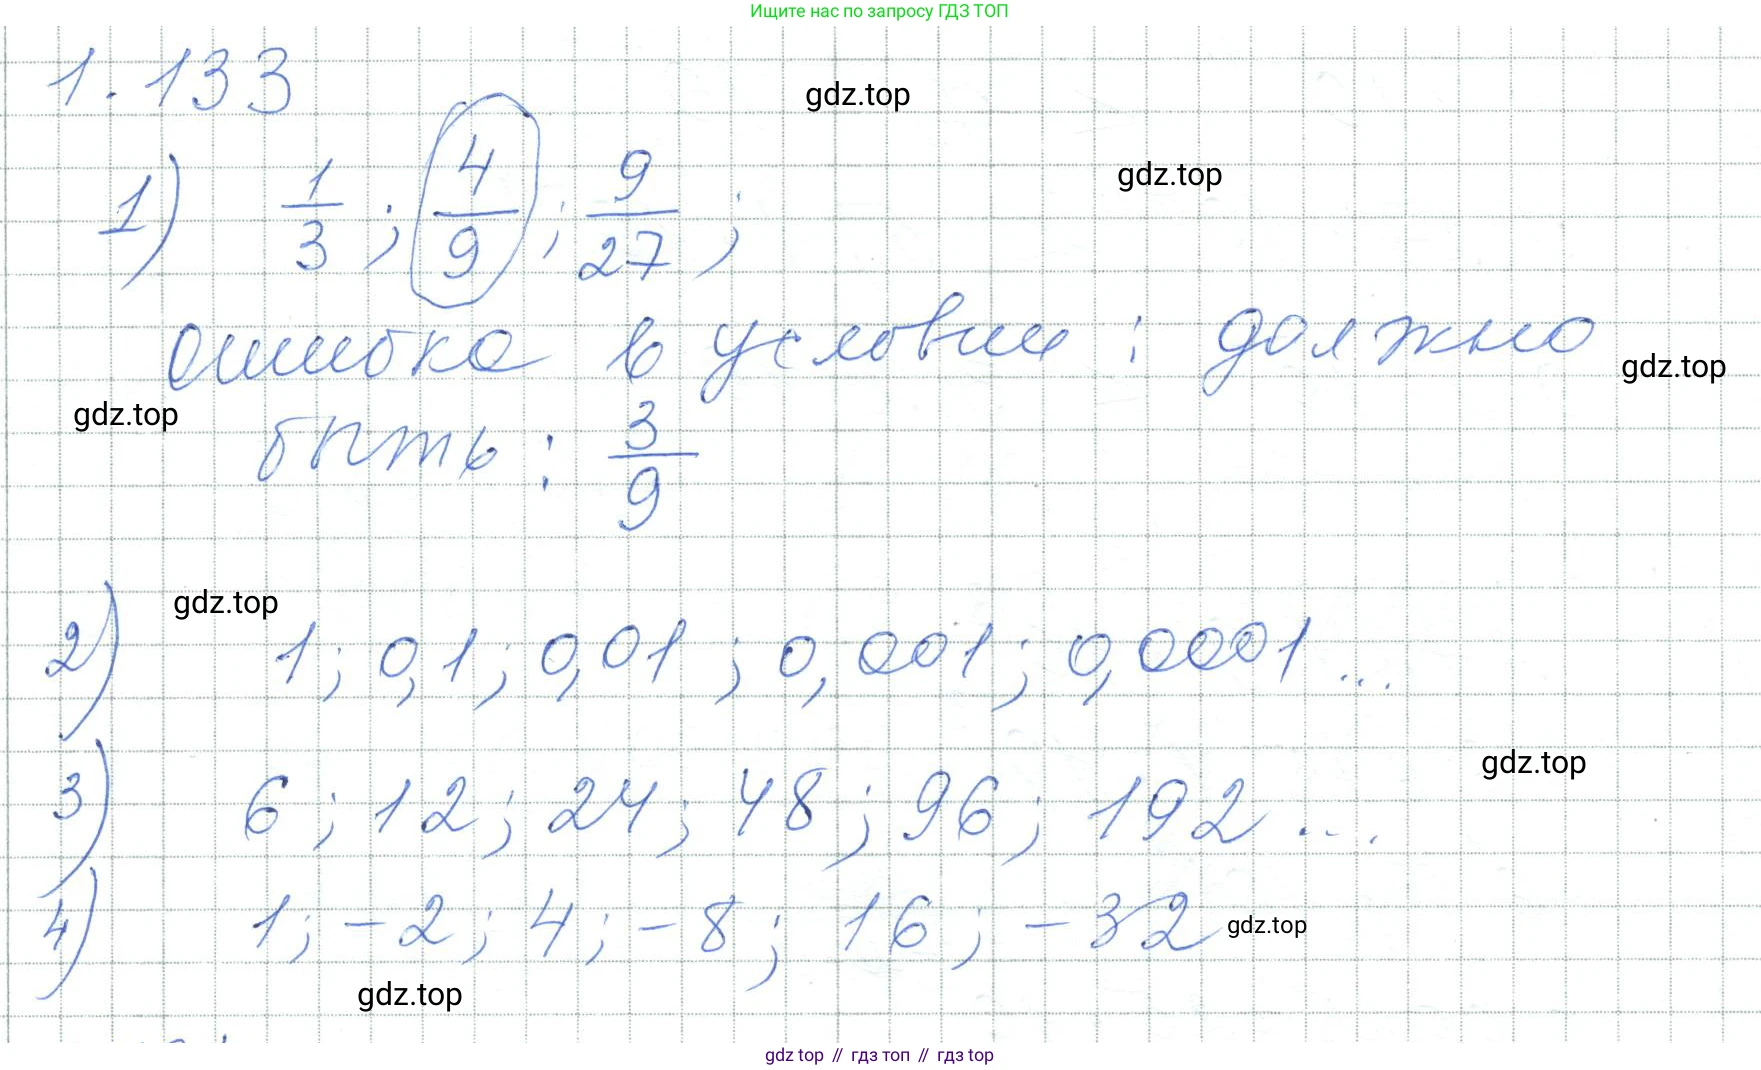 Ищите нас по запросу ГДЗ ТОП
1.133
gdz.top
gdz.top
1) 1/3 ; 4/9 ; 9/27 ;
ошибка в условии : должно
gdz.top
gdz.top
быть : 3/9
gdz.top
2) 1; 0,1; 0,01 ; 0,001; 0,0001 ...
gdz.top
3) 6; 12; 24; 48; 96; 192 ...
4) 1; -2; 4; -8; 16; -32
gdz.top
gdz.top
gdz top // гдз топ // гдз top